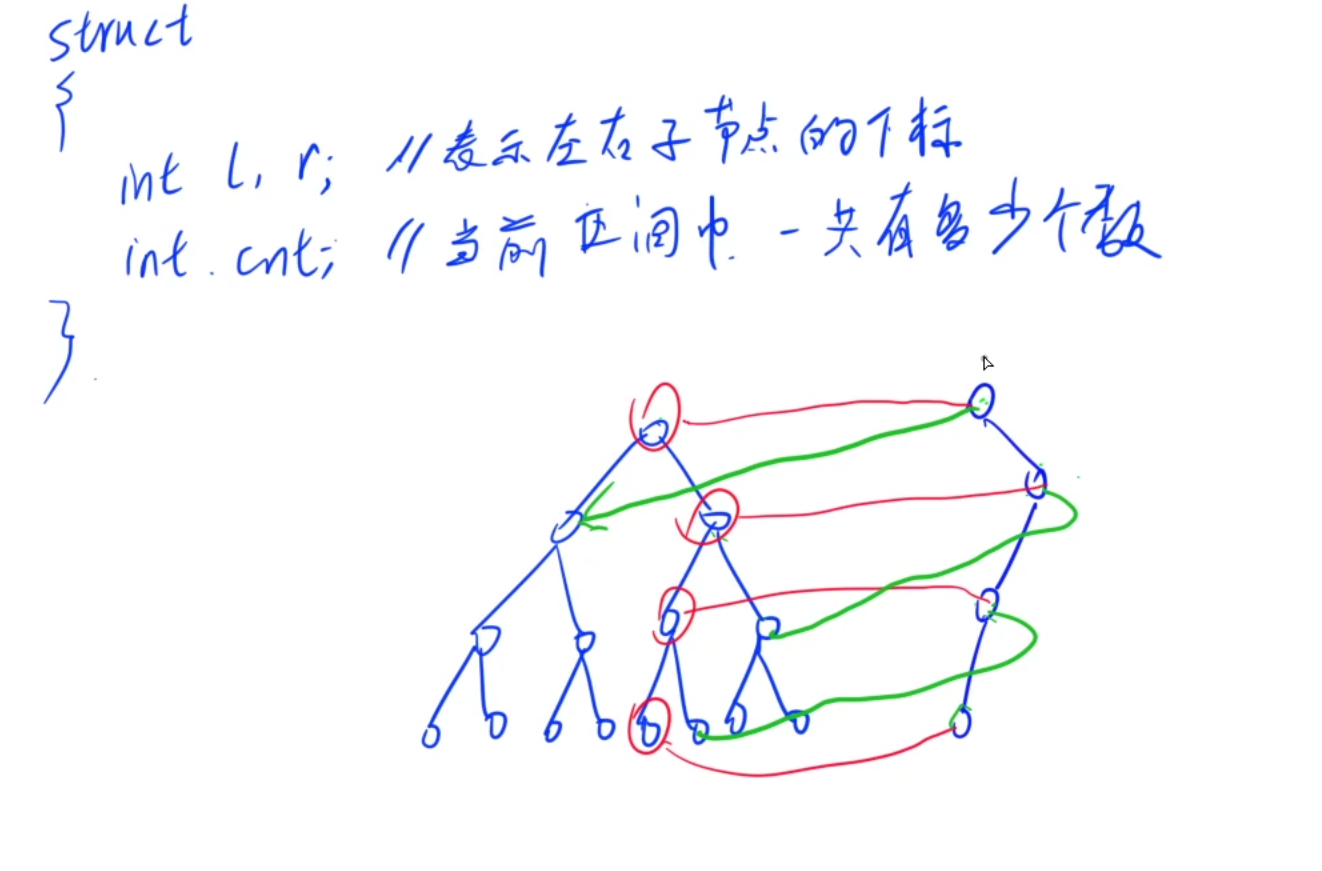 struct
{
int l, r; //表示左右子节点的下标
int cnt; //当前区间中一共有多少个数
}